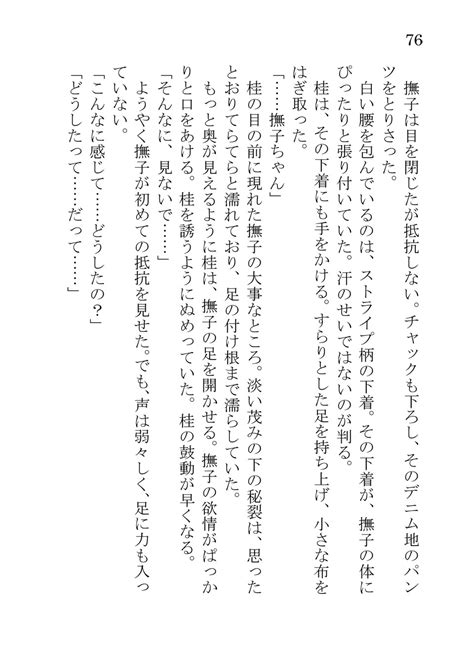 76
撫子は目を閉じたが抵抗しない。チャックも下ろし、そのデニム地のパン
ツをとりさった。
白い腰を包んでいるのは、ストライプ柄の下着。その下着が、撫子の体に
ぴったりと張り付いていた。汗のせいではないのが判る。
桂は、その下着にも手をかける。すらりとした足を持ち上げ、小さな布を
はぎ取った。
「……撫子ちゃん」
桂の目の前に現れた撫子の大事なところ。淡い茂みの下の秘裂は、思った
とおりてらてらと濡れており、足の付け根まで濡らしていた。
もっと奥が見えるように桂は、撫子の足を開かせる。撫子の欲情がぱっか
りと口をあける。桂を誘うようにぬめっていた。桂の鼓動が早くなる。
「そんなに、見ないで……」
ようやく撫子が初めての抵抗を見せた。でも、声は弱々しく、足に力も入っ
ていない。
「こんなに感じて……どうしたの？」
「どうしたって……だって……」